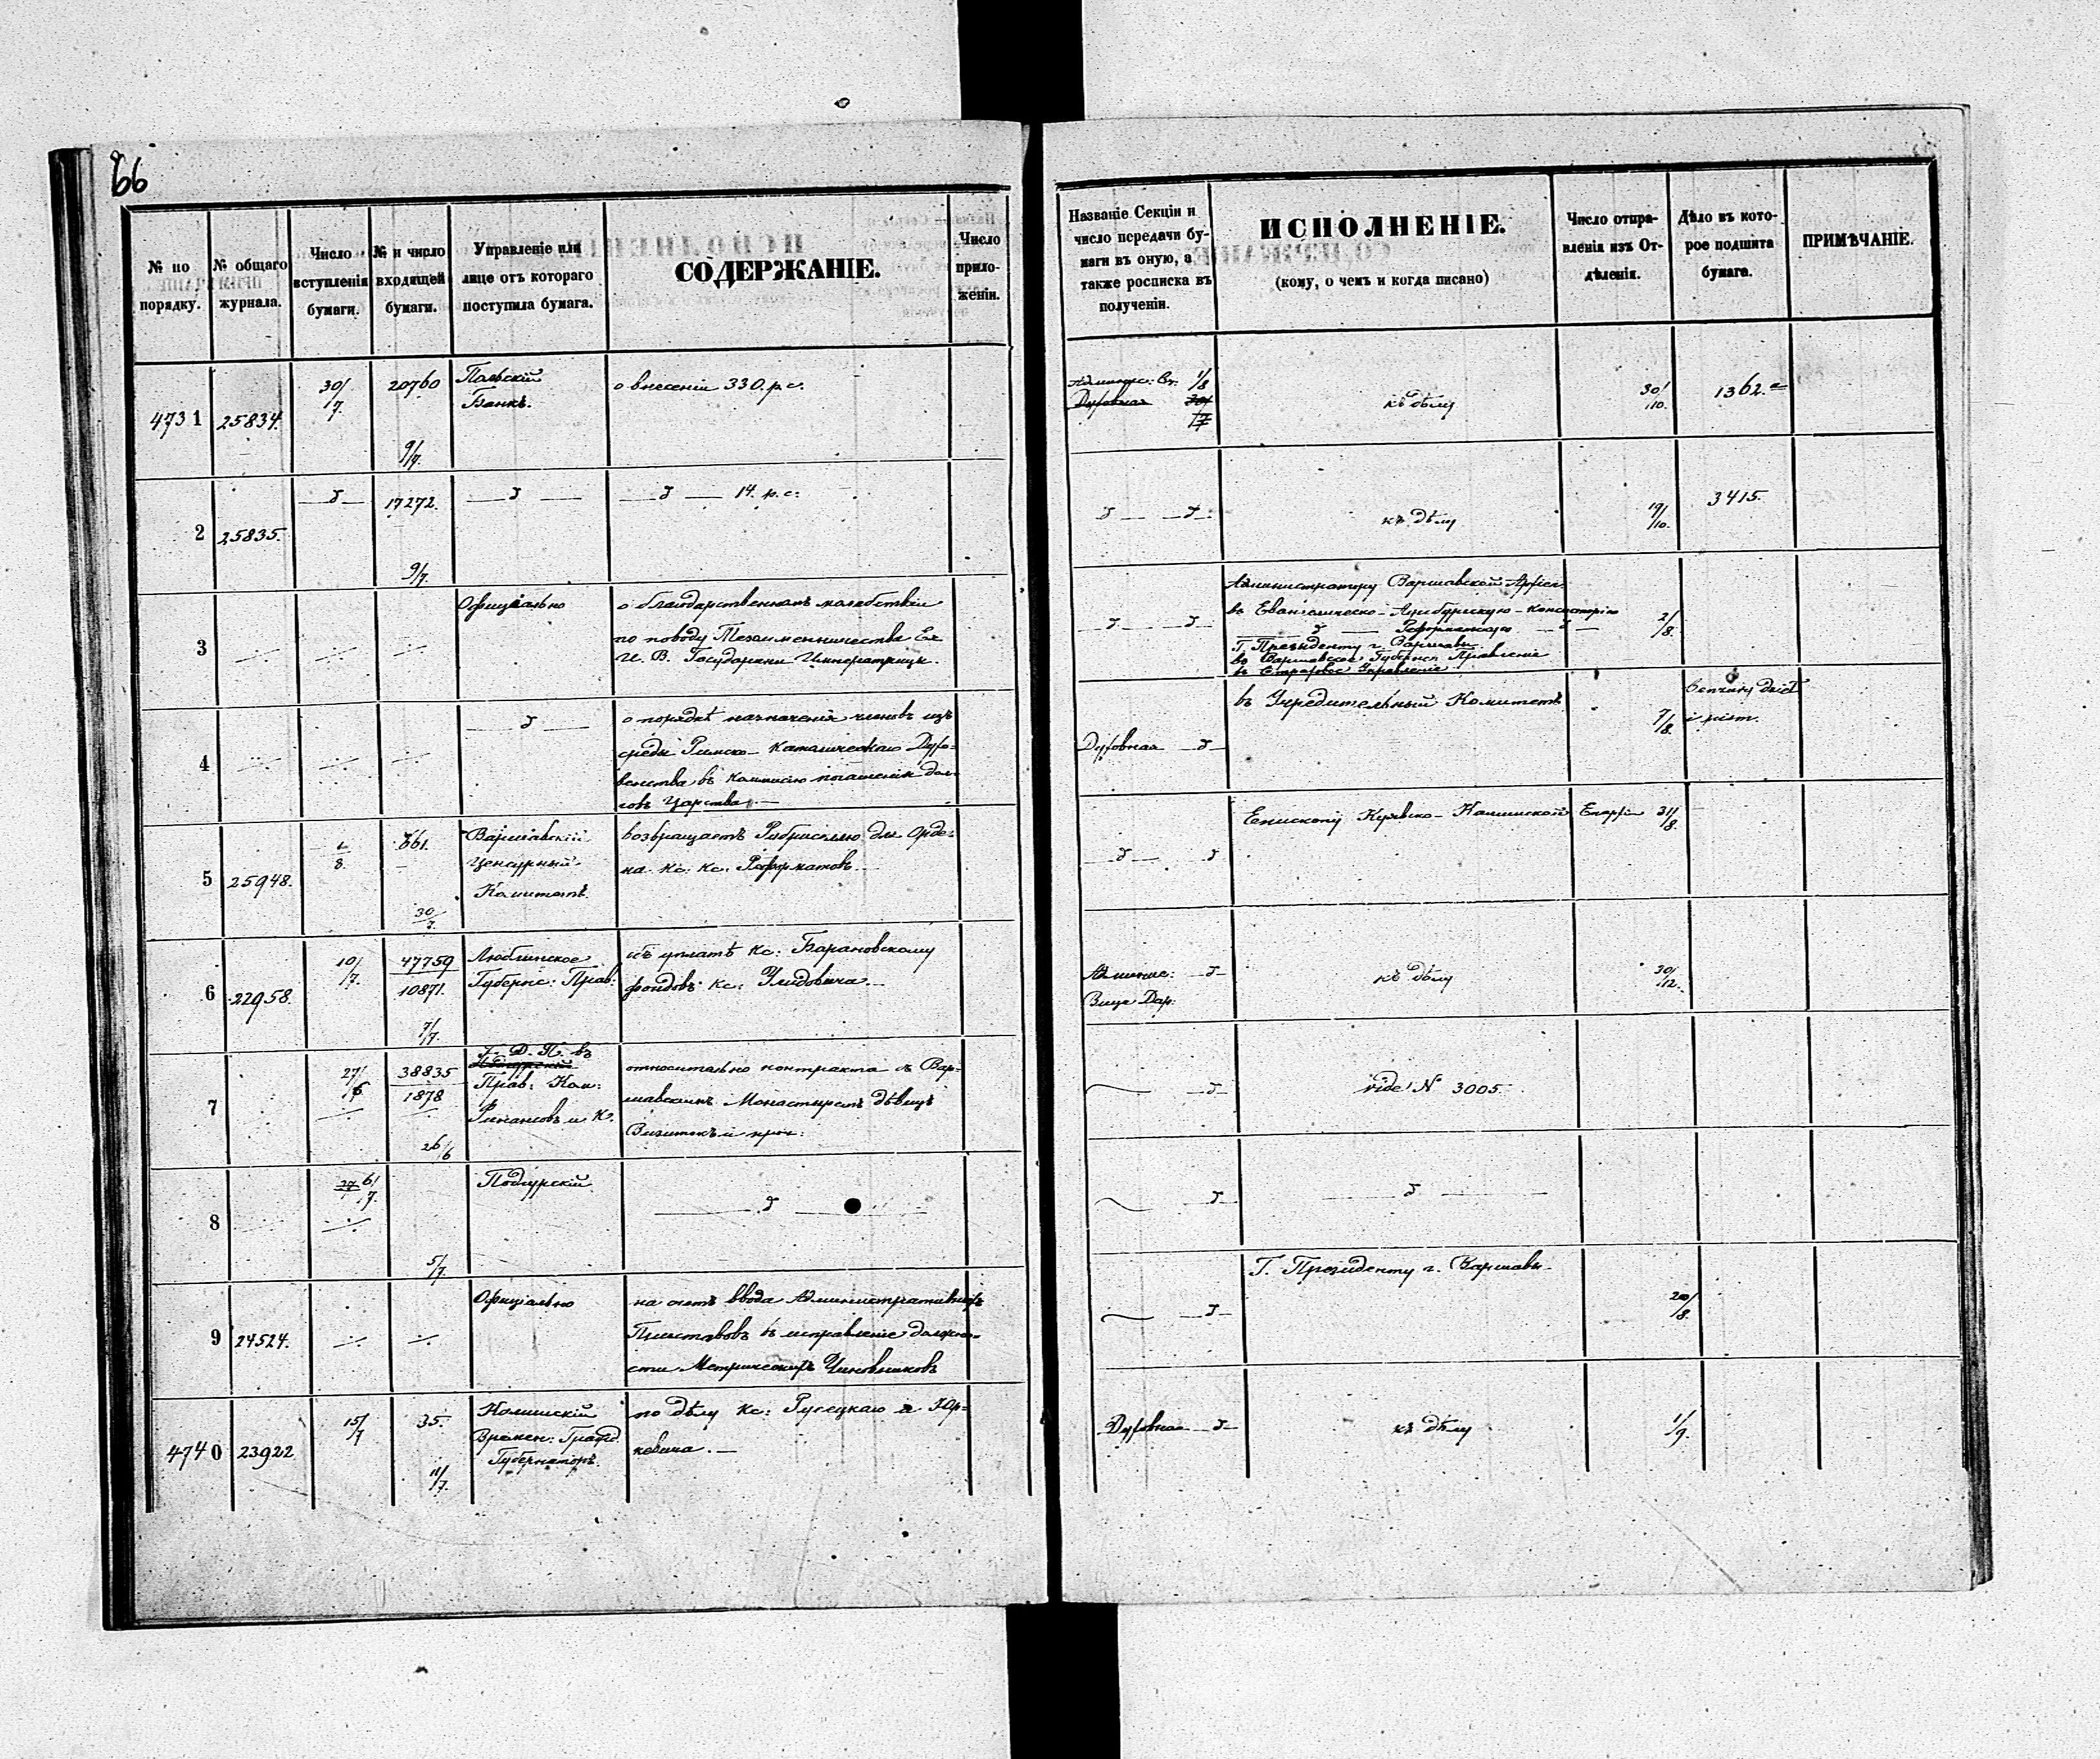 66
№ по порядку.
№ общаго журнала.
Число вступленія бумаги.
№ и число входящей бумаги.
Управленіе или лице отъ котораго поступила бумага.
СОДЕРЖАНІЕ.
Число приложеніи.
Названіе Секціи и число передачи бумаги въ оную, а также росписка въ полученіи.
ИСПОЛНЕНІЕ.
(кому, о чемъ и когда писано)
Число отправленія изъ Отдѣленія.
Дѣло въ которое подшита бумага.
ПРИМѢЧАНІЕ.
4731 25834. 30/7. 20760 9/7.
Польскій
Банкъ.
о внесеніи 330 р. с.
1/8
Духовная
къ дѣлу
30/10. 1362.
2 25835. 17272. 9/7.
14. р. с.
къ дѣлу
19/10. 3415.
3
Офиціально
о благодарственномъ молебствіи
по поводу Тезоименничества Ея
И. В. Государыни Императрицы.
Администратору Варшавской
въ Евангелическо-Аугсбургскую-Консисторію
Реформатскую
Г. Президенту г. Варшавы
въ Варшавское Губернск. Правленіе
въ Управленіе
2/8.
4
о порядкѣ назначенія членовъ изъ
среды Римско-Католическаго Духо-
венства въ Коммисію погашенія дол-
говъ Царства.
Духовная
въ Учредительный Комитетъ
7/8.
5 25948. 1/8. 661. 30/7.
Варшавскій
Ценсурный
Комитетъ.
возвращаетъ Рубрицеллю для Орде-
на Кс: Кс: Реформатовъ.
Епископу Куявско-Калишской Епархіи 31/8.
6 22958. 10/7. 47759 10871. 7/7.
Люблинское
Губернс: Прав:
объ уплатѣ Кс: Барановскому
фондовъ Кс:
Админис:
Вице Дир:
къ дѣлу
30/12.
7 27/6 38835 1878 26/6
Г. Д. П. въ
Прав: Ком:
Финансовъ и К.
относительно контракта съ Вар-
шавскимъ Монастыремъ дѣвицъ
Визитокъ и проч:
vide № 3005.
8 6/7. 5/7.
Подгурскій
9 24524.
Офиціально
на счетъ ввода Административныхъ
въ исправленіе должно-
сти Метрическихъ Чиновниковъ
Г. Президенту г. Варшавы.
20/8.
4740 23922 15/7 35. 11/7.
Калишскій
Времен: Гражд.
Губернаторъ.
по дѣлу Кс: Русецкаго и Юр-
кевича.
Духовная
къ дѣлу
1/9.